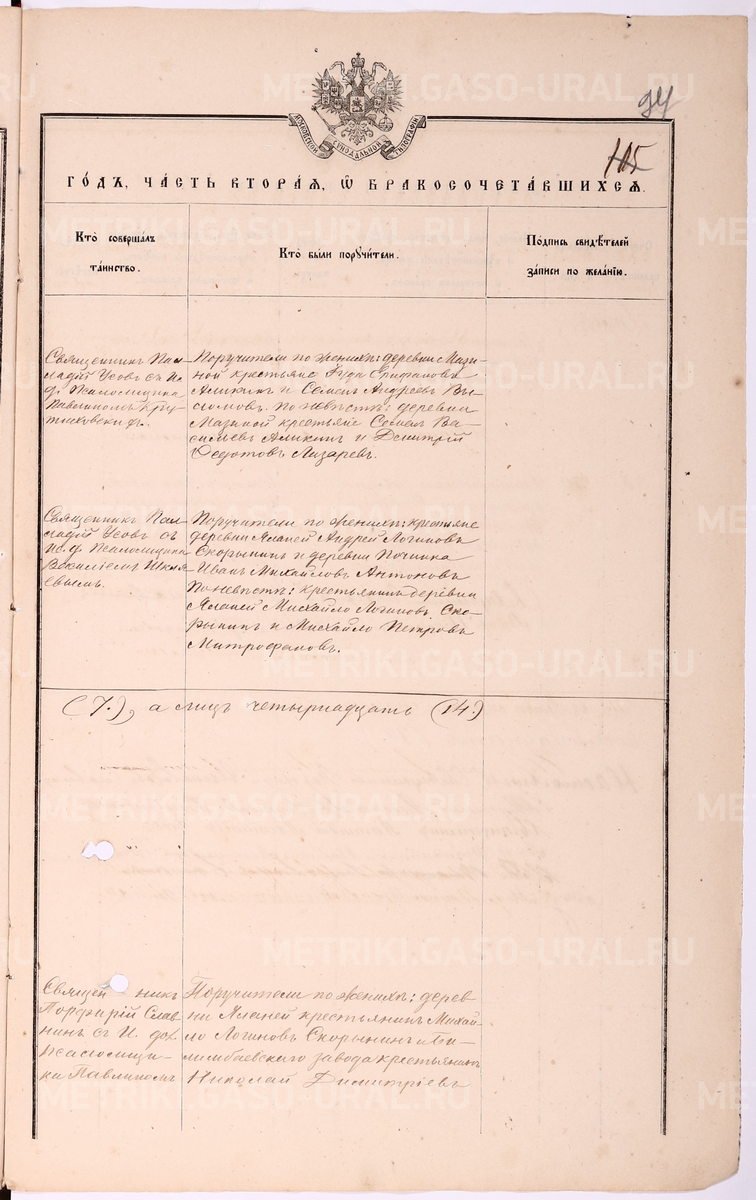 94
105
МОСКОВСКОЙ СѴНОДАЛЬНОЙ ТИПОГРАФІИ
ГОДЪ, ЧАСТЬ ВТОРАЯ, Ѡ БРАКОСОЧЕТАВШИХСЯ.
Кто совершалъ
таинство.
Кто были поручители.
Подпись свидѣтелей
записи по желанію.
Священникъ Пал-
ладій Усовъ съ и.
д. Псаломщика
Павлиномъ
Поручители по женихѣ: деревни Мази-
ной крестьяне Іуда Епифановъ
Аликинъ и Семенъ Андреевъ
По невѣстѣ: деревни
Мазиной крестьяне Семенъ Ва-
сильевъ Аликинъ и Дмитрій
Ѳедотовъ Лизаревъ.
Священникъ Пал-
ладій Усовъ съ
и. д. Псаломщика
Василіемъ
Поручители по женихѣ: крестьяне
деревни Яланей Андрей Логиновъ
Скорынинъ и деревни Починка
Иванъ Михайловъ Антоновъ
По невѣстѣ: крестьянинъ деревни
Яланей Михайло Логиновъ Ско-
рынинъ и Михайло Петровъ
Митрофановъ.
(7.), а лицъ четырнадцать (14.)
Священникъ
Порфирій Слав-
нинъ съ И. дол.
Псаломщи-
ка Павлиномъ
Поручители по женихѣ: дерев-
ни Яланей крестьянинъ Михай-
ло Логиновъ Скорынинъ и Би-
лимбаевскаго завода крестьянинъ
Николай Димитріевъ
METRIKI.GASO-URAL.RU